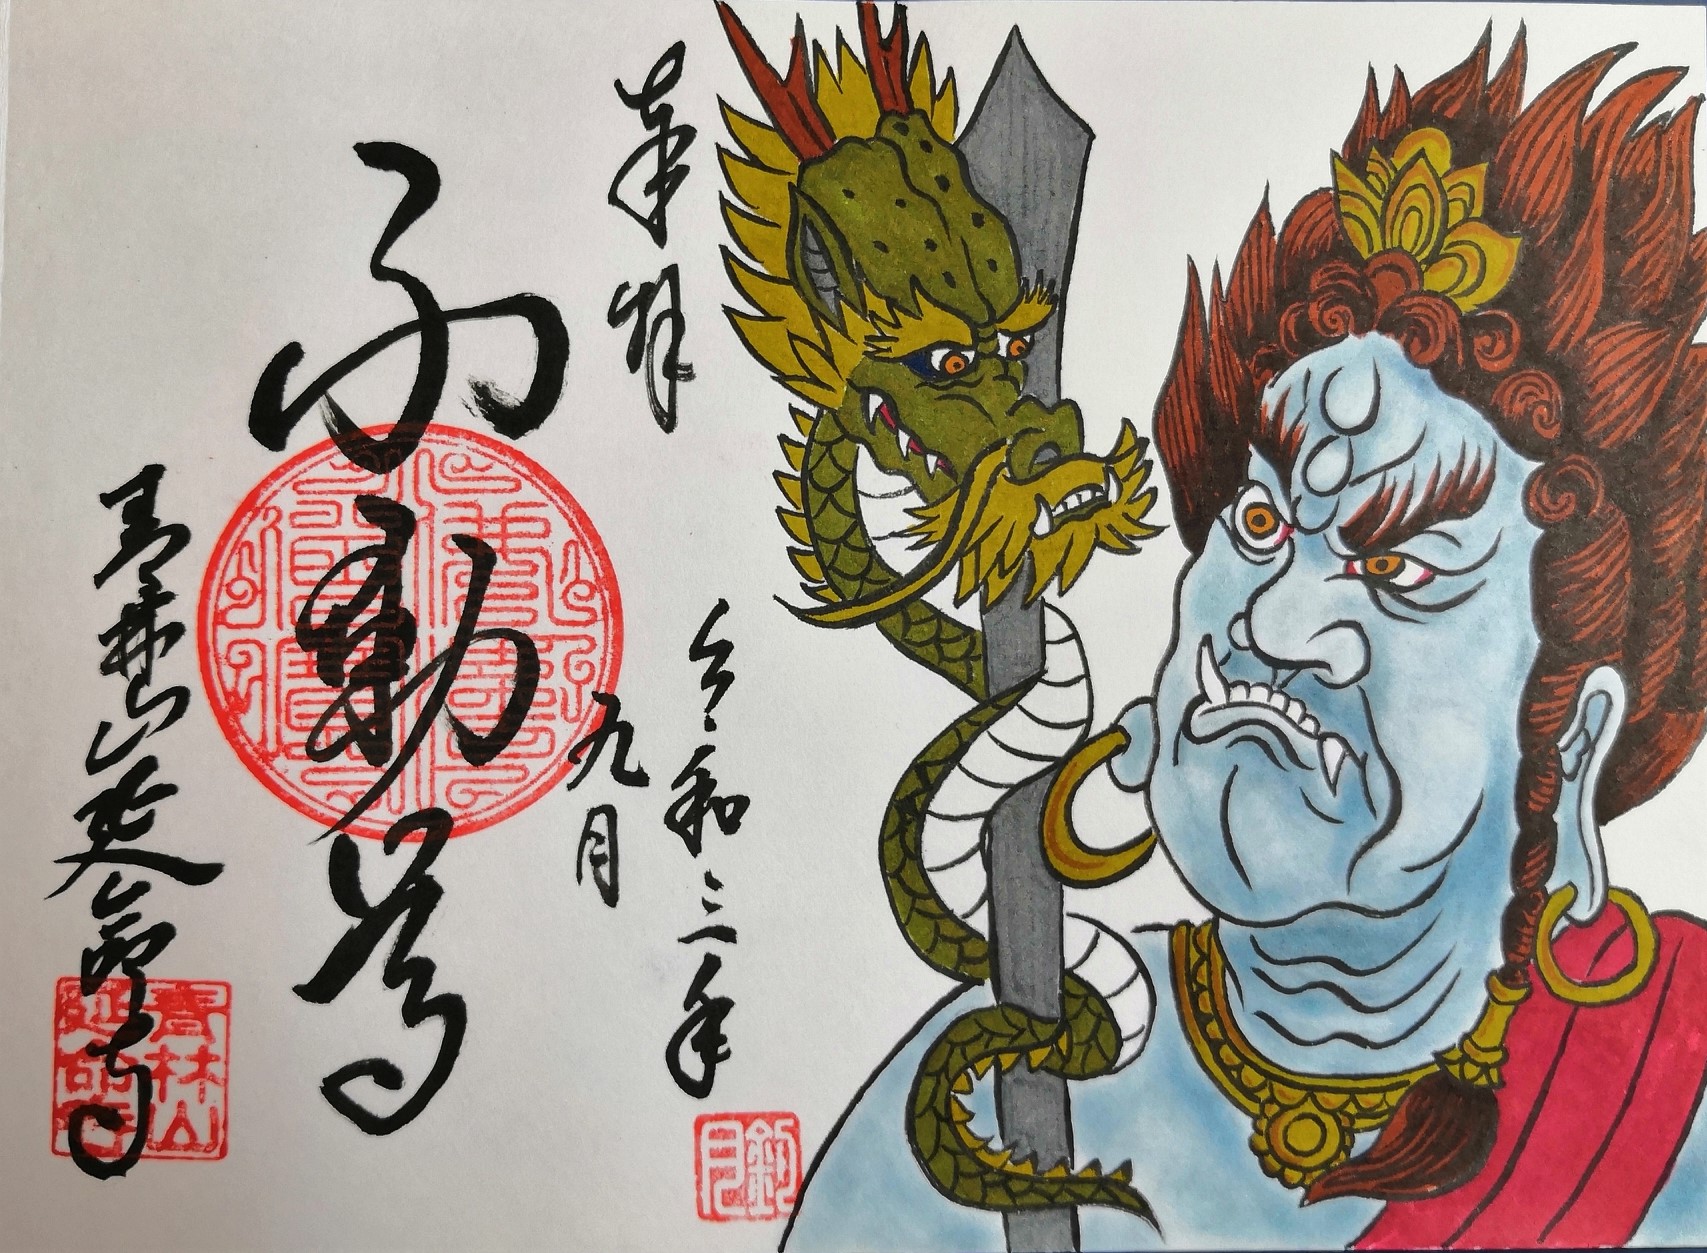 奉拝
令和三年
九月
不動尊
青林山延命寺
青林山
延命寺
釣月